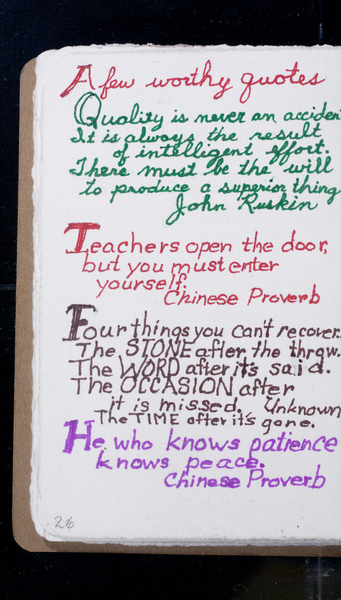 A few worthy quotes
Quality is never an acciden
It is always the result
of intelligent effort.
There must be the will
to produce a superior thing
John Ruskin
Teachers open the door,
but you must enter
yourself.
Chinese Proverb
Four things you can't recover.
The STONE after the throw.
The WORD after it's said.
The OCCASION after
it is missed. Unknown
The TIME after it's gone.
He who knows patience
knows peace.
Chinese Proverb
26